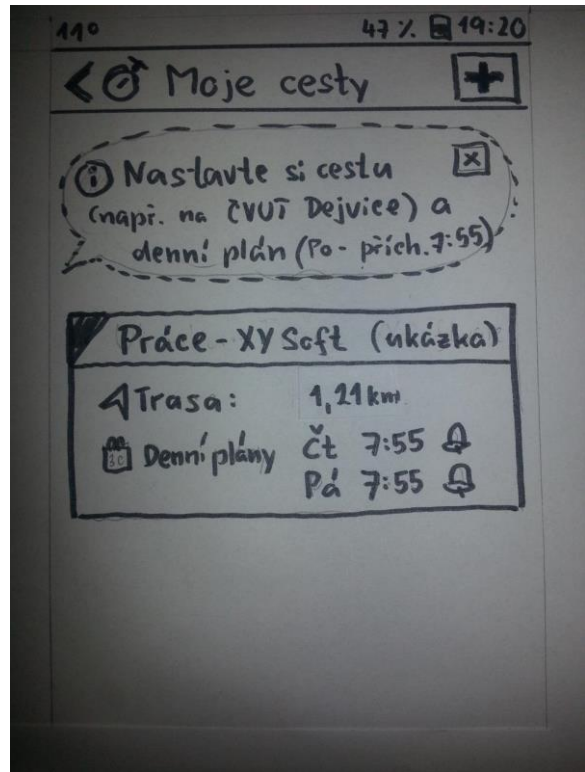 11° 47 % 19:20
< Moje cesty +
i Nastavte si cestu x
(např. na ČVUT Dejvice) a
denní plán (Po - přích. 7:55)
Práce - XY Soft (ukázka)
Trasa: 1,21 km
Denní plány Čt 7:55
Pá 7:55